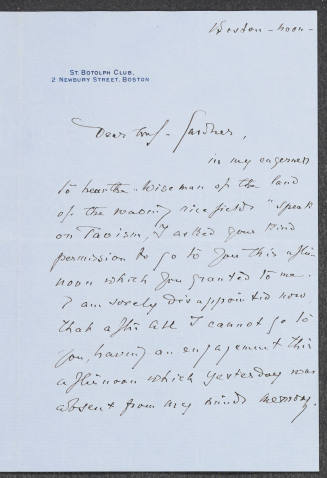 Boston - noon -
ST. BOTOLPH CLUB,
2 NEWBURY STREET, BOSTON
Dear Mrs. Gardner,
in my eagerness
to hear the "Wise man of the land
of the waving rice fields" speak
on Taoism, I asked your kind
permission to go to you this after
noon which you granted to me.
I am sorely disappointed now
that after all I cannot go to
you, having an engagement this
afternoon which yesterday was
absent from my mind's memory.